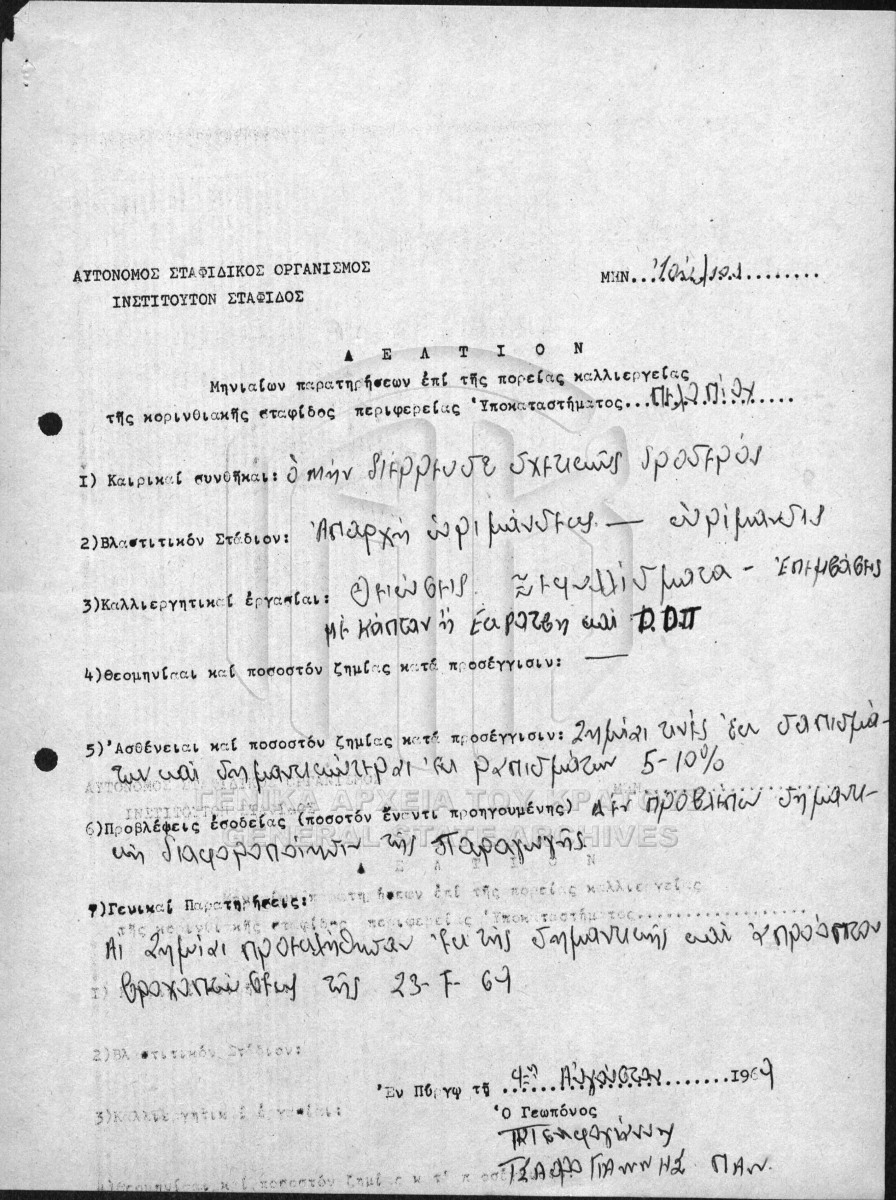 ΑΥΤΟΝΟΜΟΣ ΣΤΑΦΙΔΙΚΟΣ ΟΡΓΑΝΙΣΜΟΣ
ΙΝΣΤΙΤΟΥΤΟΝ ΣΤΑΦΙΔΟΣ
ΜΗΝ...Ἰούλιος........
ΔΕΛΤΙΟΝ
Μηνιαίων παρατηρήσεων ἐπί τῆς πορείας καλλιεργείας
τῆς κορινθιακῆς σταφίδος περιφερείας Ὑποκαταστήματος...Πελοπίου
Ι) Καιρικαί συνθῆκαι: ὁ μήν διέρρευσε σχετικῶς δροσερός
2)Βλαστιτικόν Στάδιον: Ἀπαρχή ὡριμάνσεως — ὡρίμανσις
3)Καλλιεργητικαί ἐργασίαι: Θειώσεις. Ξεφυλλίσματα - Ἐπεμβάσεις
μέ κάπταν ἤ και D.D.Π
4)Θεομηνίααι καί ποσοστόν ζημίας κατά προσέγγισιν: —
5)Ἀσθένειαι καί ποσοστόν ζημίας κατά προσέγγισιν: Ζημίαι τινές ἐκ σαπισμά-
των και σημαντικώτεραι ἐκ ραπισμάτων 5-10%
6)Προβλέψεις ἐσοδείας (ποσοτόν ἔναντι προηγουμένης) Δέν προβλέπω σημαντι-
κή διαφοροποίησιν τῆς παραγωγῆς.
7)Γενικαί Παρατηρήσεις:
Αἱ ζημίαι προεκλήθησαν ἐκ τῆς σημαντικῆς και ἀπροόπτου
βροχοπτώσεως τῆς 23-7-69
Ἐν Πύργῳ τῇ 4ῃ Αὐγούστου.......1969
Ὁ Γεωπόνος
ΤΣΑΦΟΓΙΑΝΝΗΣ ΠΑΝ.
ΓΕΝΙΚΑ ΑΡΧΕΙΑ ΤΟΥ ΚΡΑΤΟΥΣ
GENERAL STATE ARCHIVES